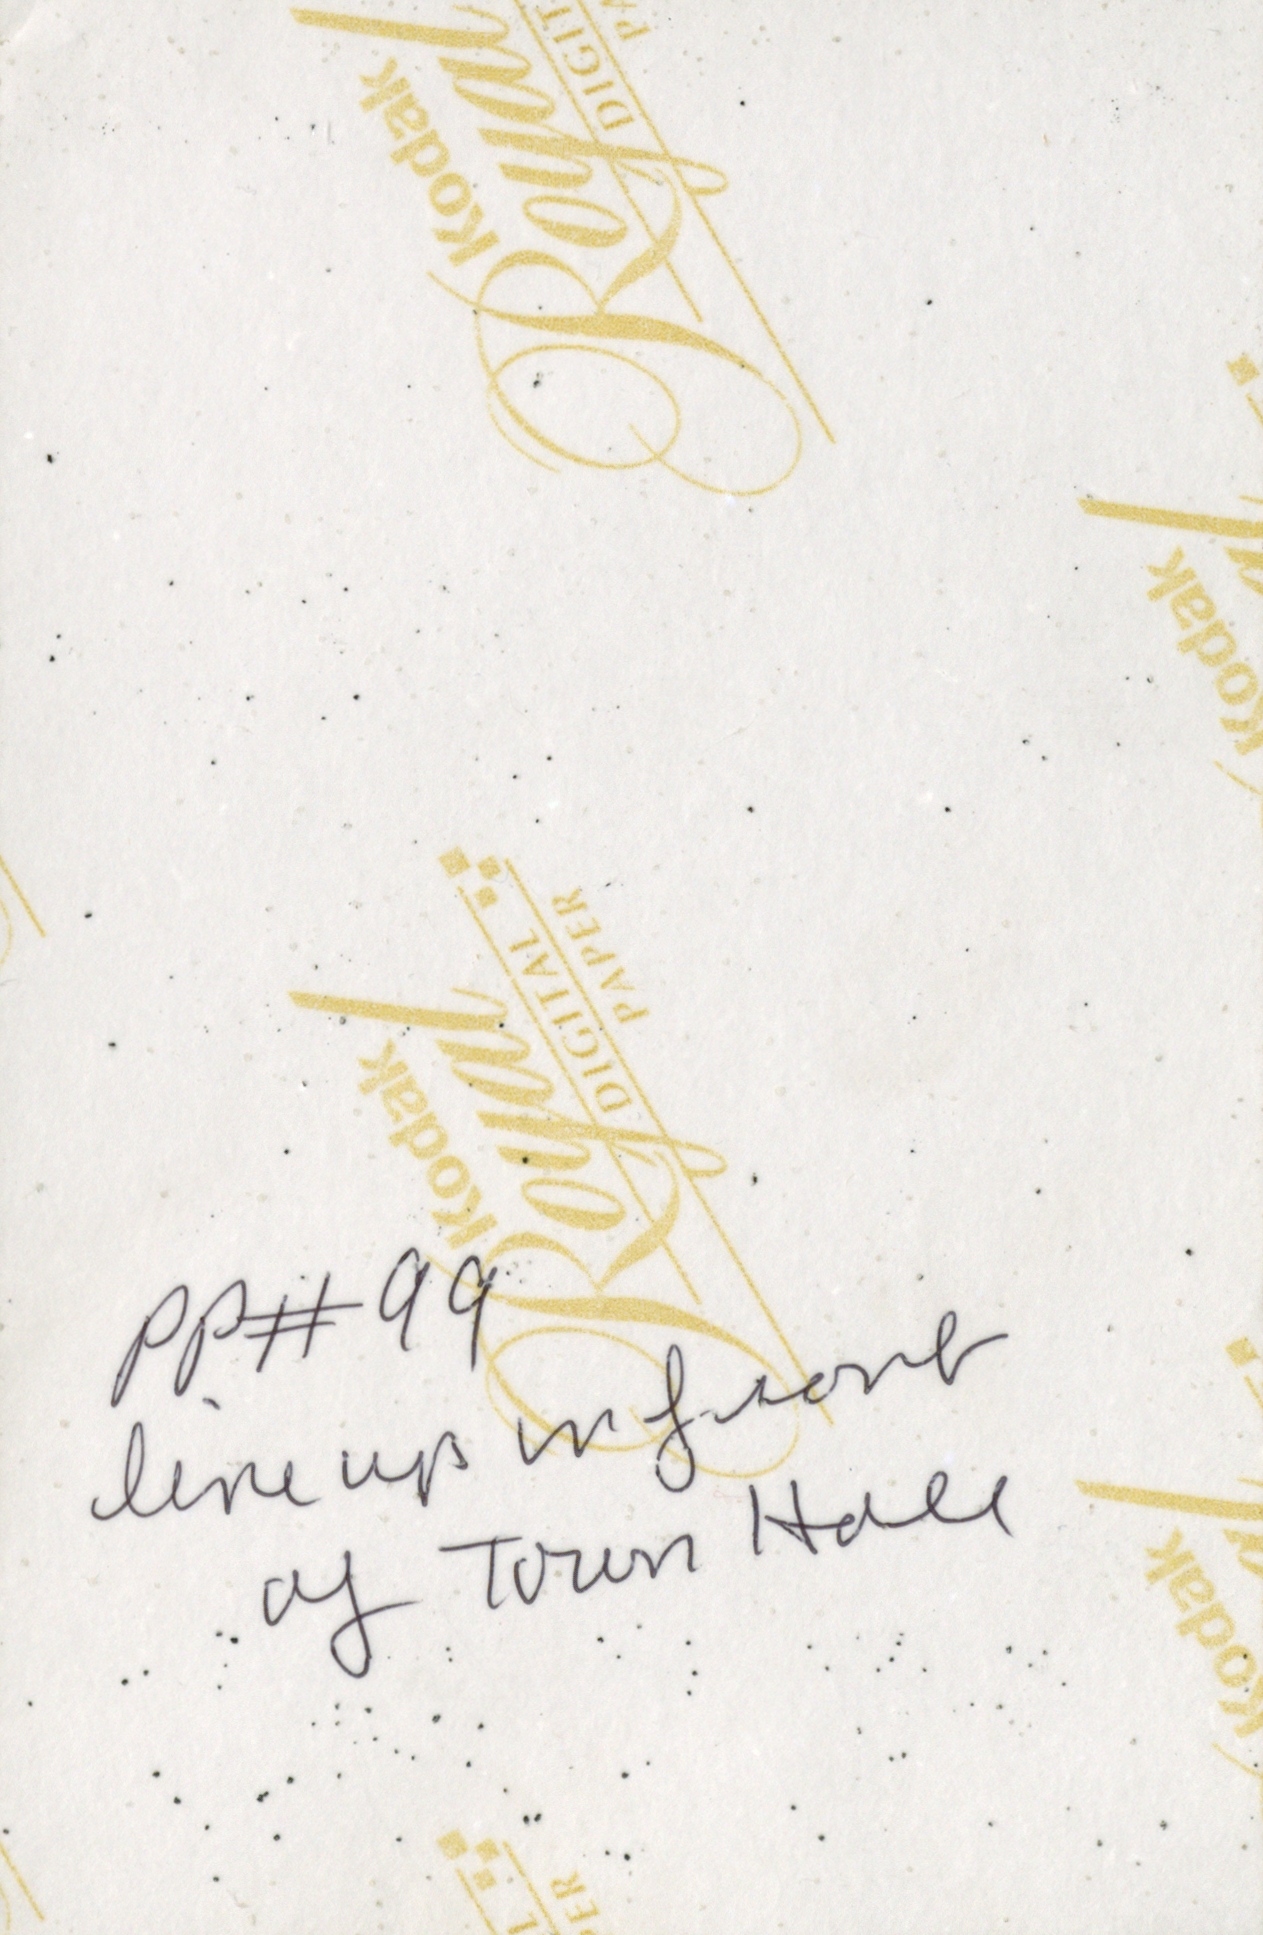 Kodak
Royal
DIGITAL
PAPER
Kodak
Kodak
Royal
DIGITAL
PAPER
PP# 99
line up in front
of Town Hall
Kodak